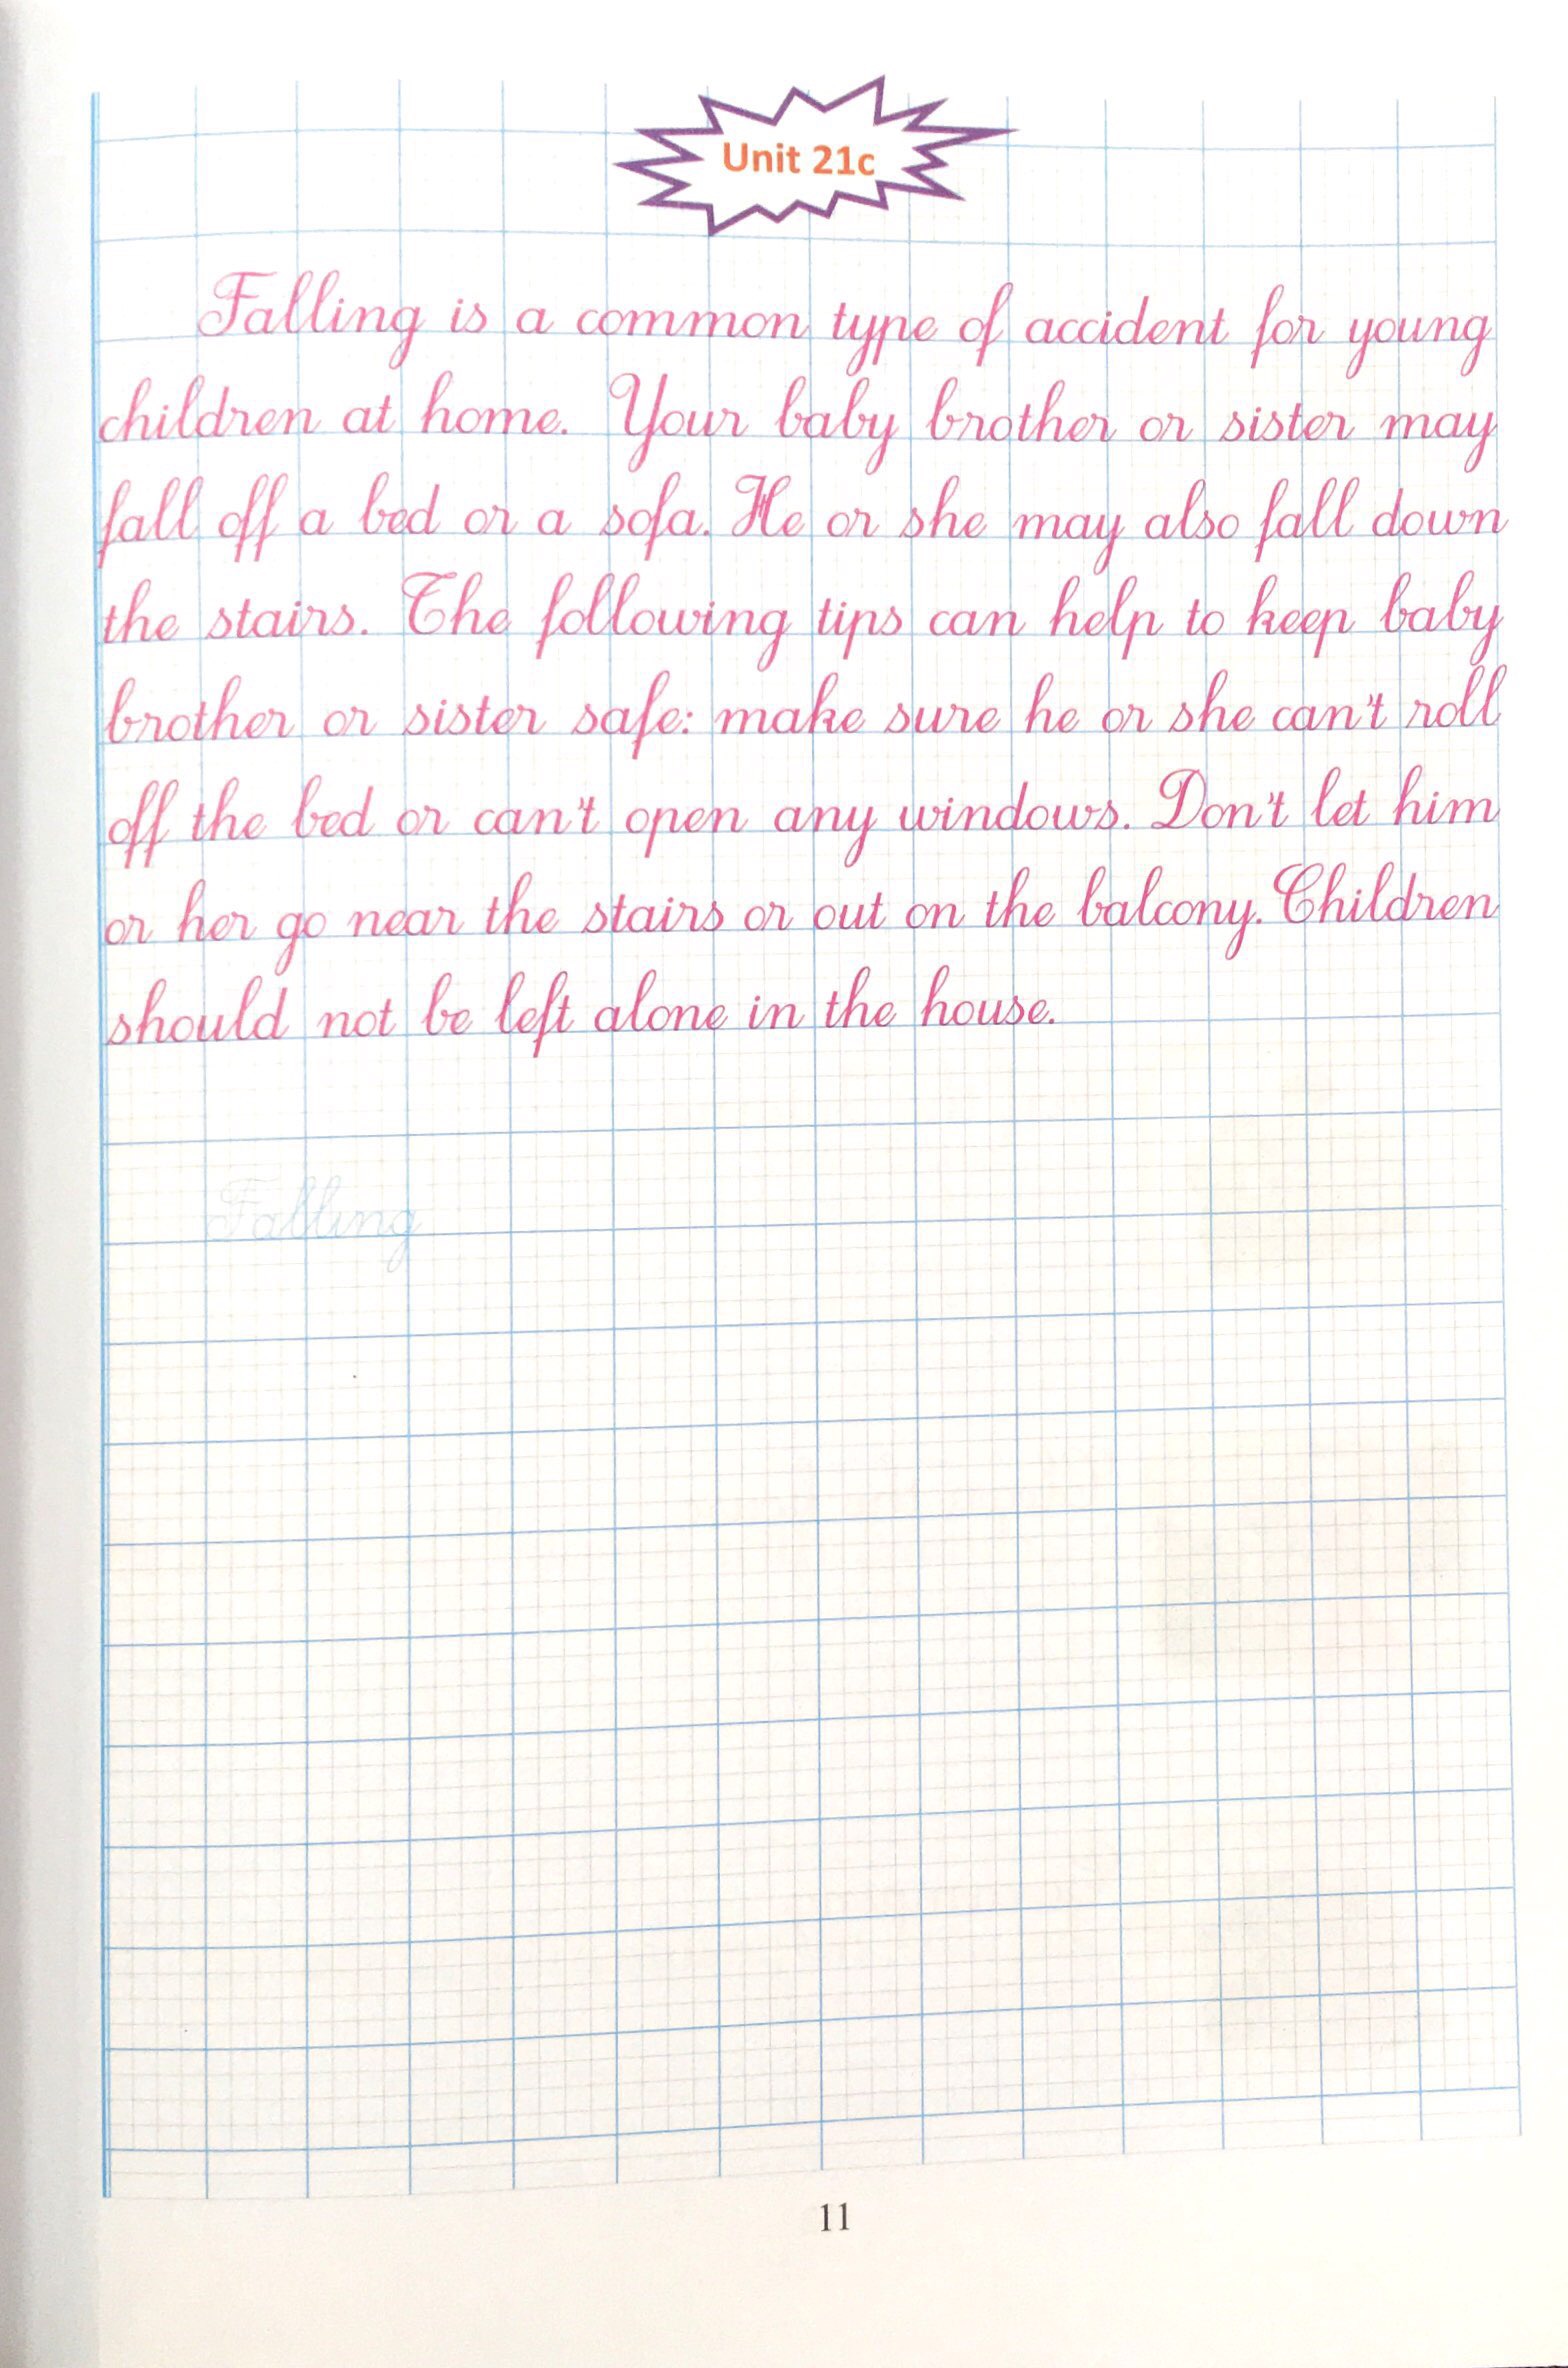 Unit 21c
Falling is a common type of accident for young
children at home. Your baby brother or sister may
fall off a bed or a sofa. He or she may also fall down
the stairs. The following tips can help to keep baby
brother or sister safe: make sure he or she can't roll
off the bed or can't open any windows. Don't let him
or her go near the stairs or out on the balcony. Children
should not be left alone in the house.
Falling
11